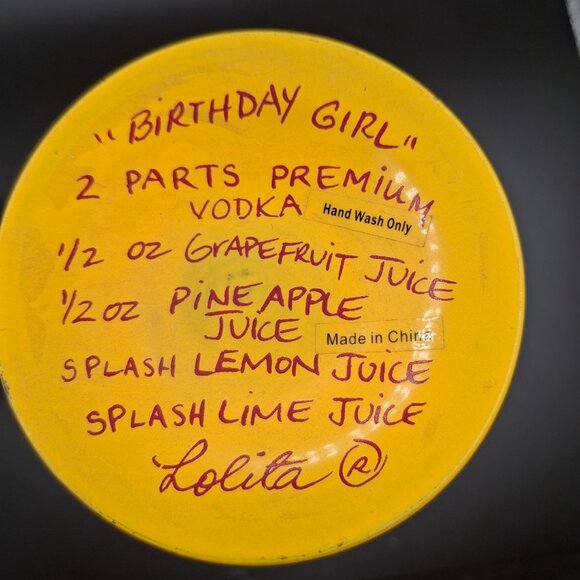 "BIRTHDAY GIRL"
2 PARTS PREMIUM
VODKA
Hand Wash Only
1/2 oz GRAPEFRUIT JUICE
1/2 oz PINEAPPLE
JUICE
Made in China
SPLASH LEMON JUICE
SPLASH LIME JUICE
Lolita ®